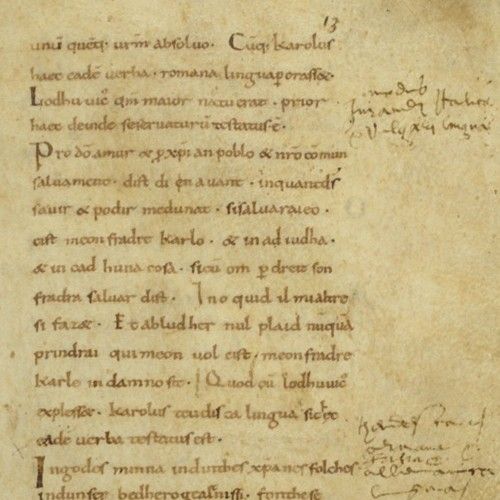 13
unū quēq; urm̄ absoluo. Cūq; Karolus
haec eadē uerba . romana lingua perorasset .
Lodhuuic᷒ qm̄ maior natu erat . prior
haec deinde se seruaturū testatus ē .
Pro dō amur & ꝑ xp̄ian poblo & nr̄o cōmun
saluament . dist di en auant . inquantdš
sauir & podir medunat . sisaluaraieo .
cist meon fradre Karlo . & in ad iudha .
& in cad huna cosa . sicū om ꝑ dreit son
fradra saluar dist . Ino quid il mialtre
si fazet . Et abludher nul plaid nūquā
prindrai qui meon uol cist . meon fradre
Karle in damno sit . Quod cū lodhuuic᷒
explesset . Karolus teudisca lingua sic hec
eadē uerba testatus est .
Ingodes minna indinthes xp̄anes folches
indunser bedhero gealtnissi . fonthese